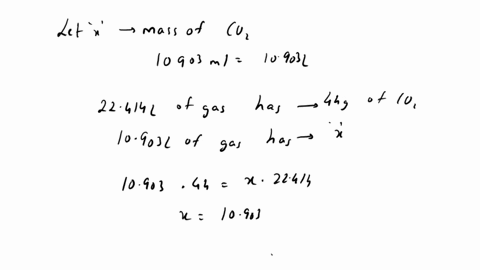 Let 'x' → mass of CO₂
10903 ml = 10.903L
22.414L of gas has → 44g of CO₂
10.903L of gas has → 'x'
10.903 . 44 = x . 22.414
x = 10.903